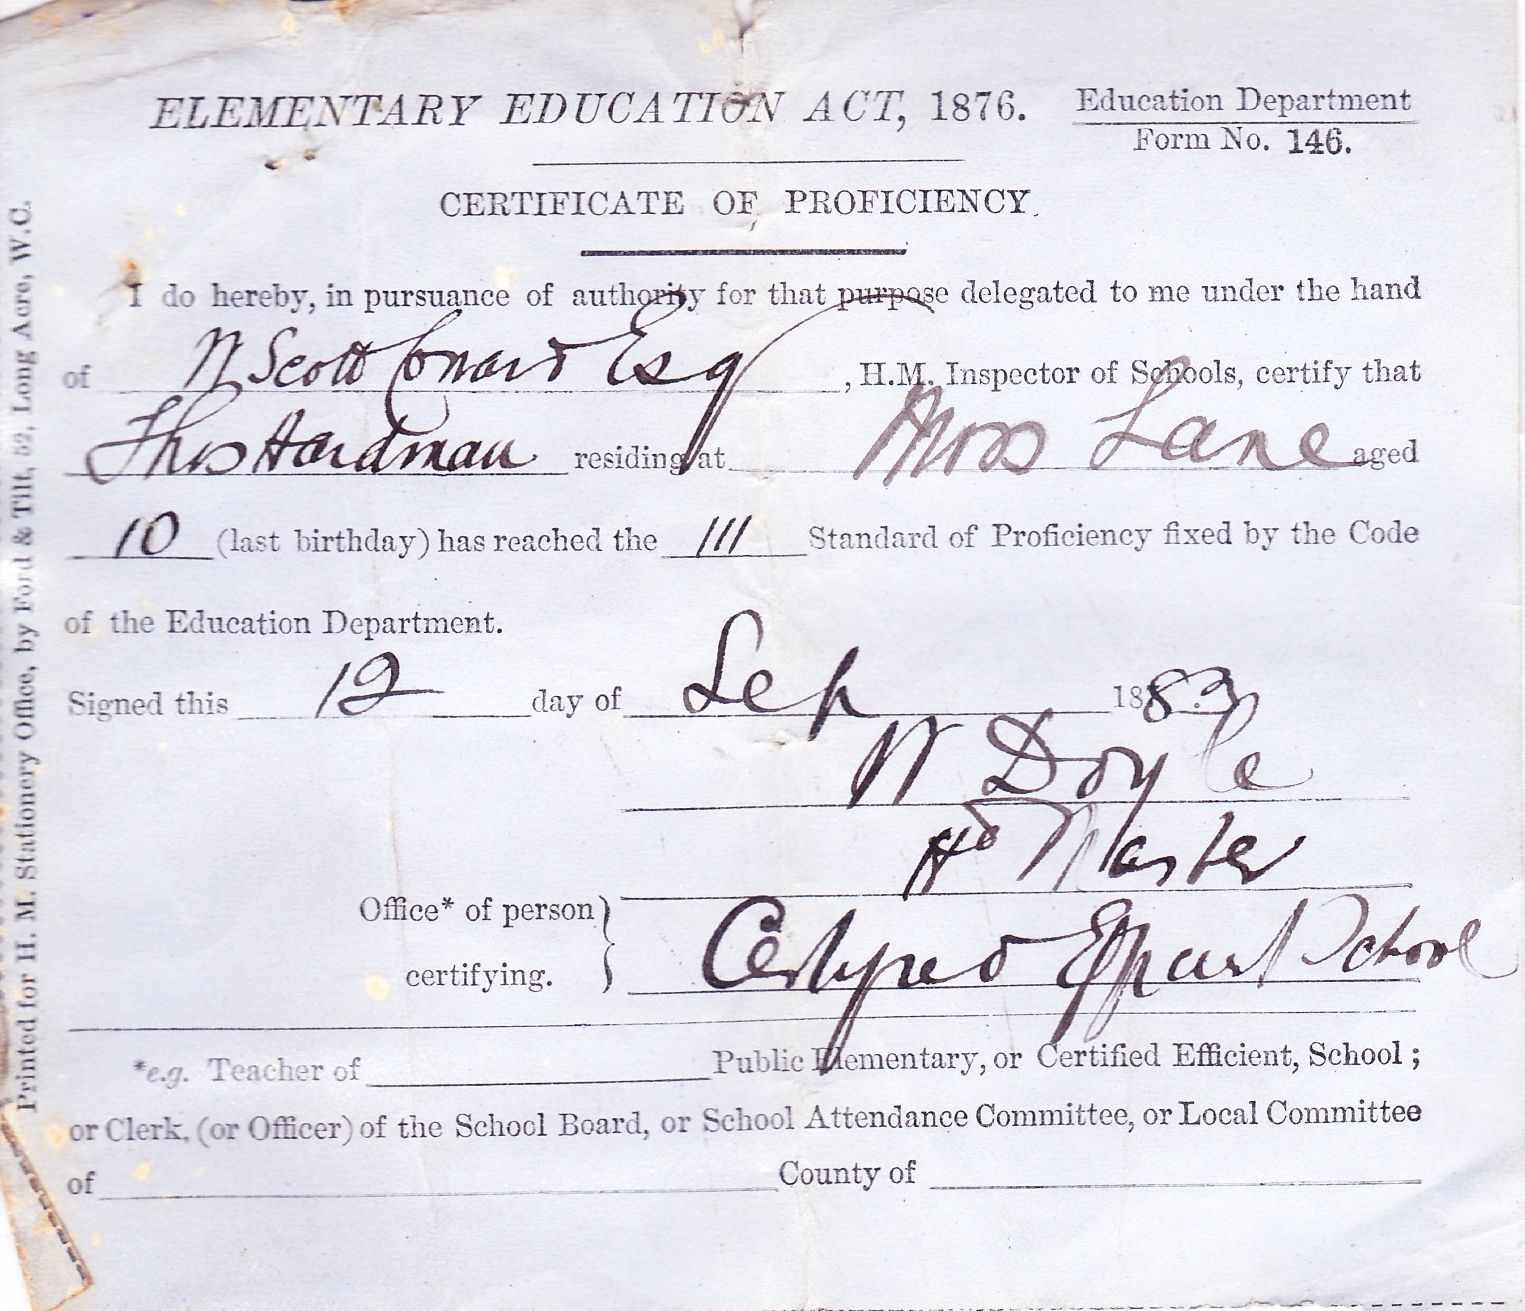 ELEMENTARY EDUCATION ACT, 1876.
Education Department
Form No. 146.
CERTIFICATE OF PROFICIENCY.
I do hereby, in pursuance of authority for that purpose delegated to me under the hand
of W Scott Coward Esq, H.M. Inspector of Schools, certify that
Thos Hardman residing at Moss Lane aged
10 (last birthday) has reached the III Standard of Proficiency fixed by the Code
of the Education Department.
Signed this 12 day of Sep 1883
W Doyle
Hd Master
Office* of person certifying. } Certified Efficient School
*e.g. Teacher of Public Elementary, or Certified Efficient, School;
or Clerk, (or Officer) of the School Board, or School Attendance Committee, or Local Committee
of County of
Printed for H. M. Stationery Office, by Ford & Tilt, 52, Long Acre, W.C.